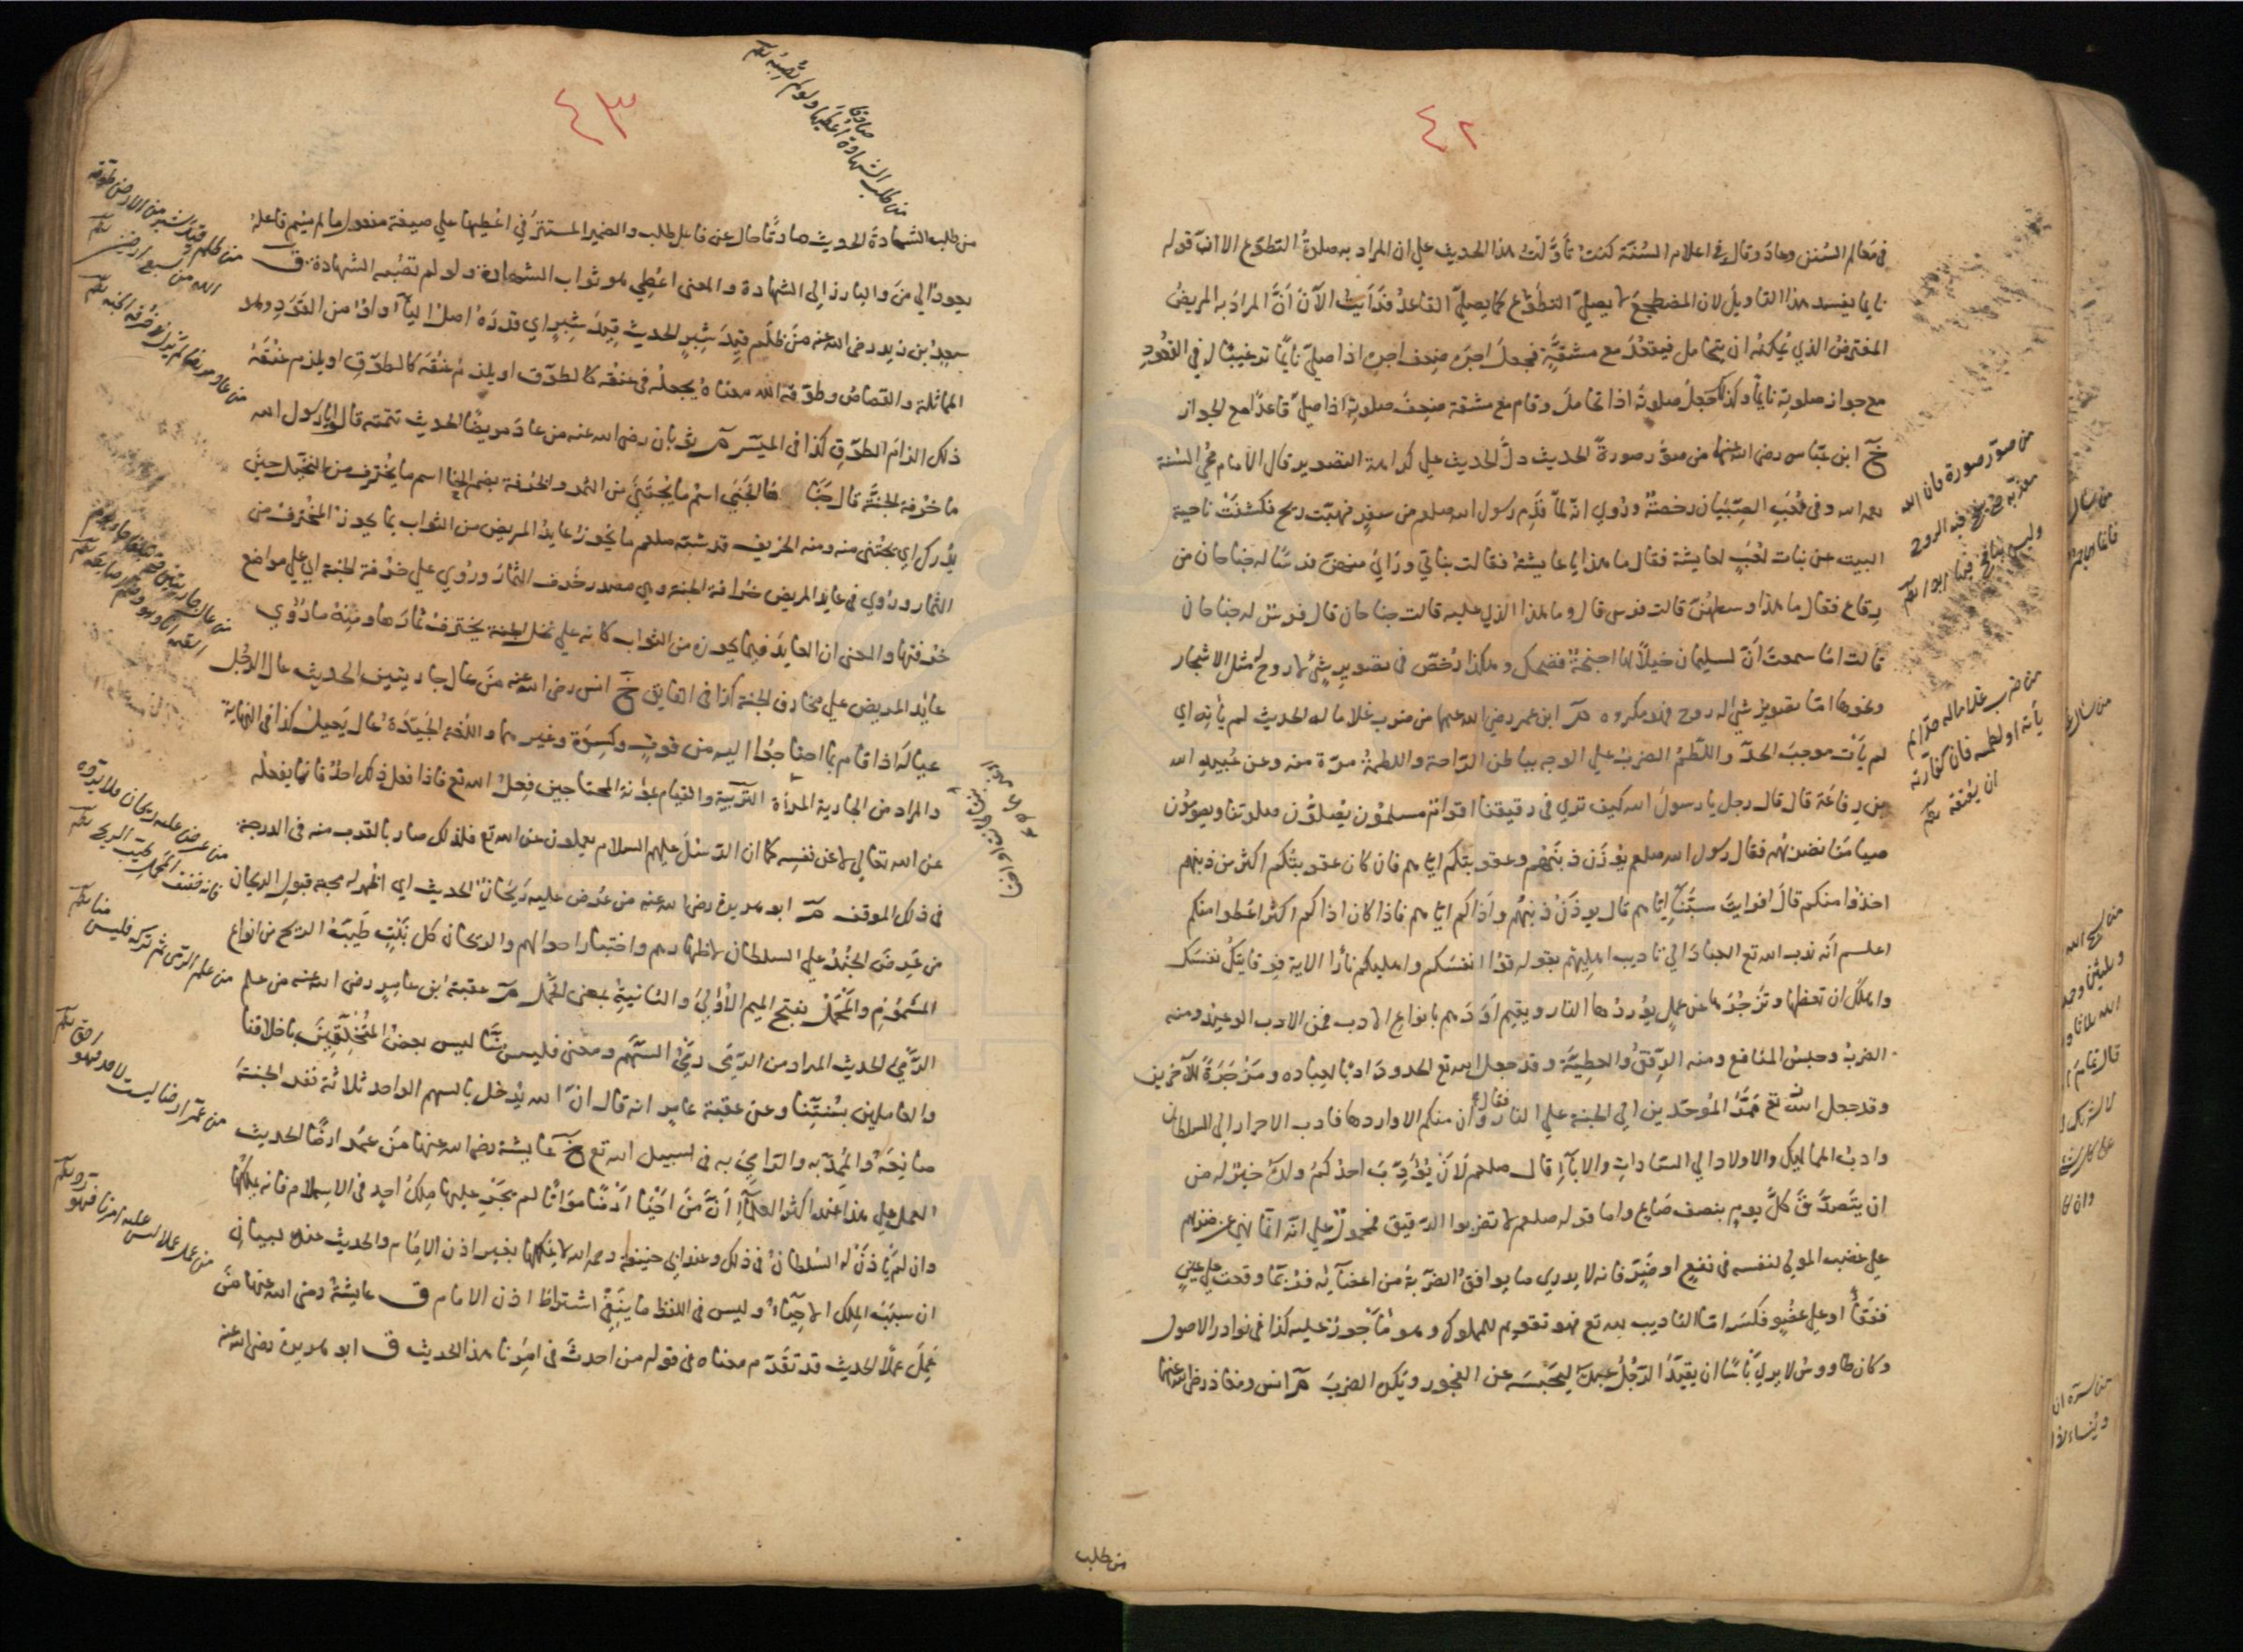 ٤٢
في معالم السنن وعاد وقال في اعلام السنة كنت تأولت هذا الحديث علي ان المراد به صلوة التطوع الا ان قوله
نايما يفسد هذا التاويل لان المضطجع لا يصلي التطوع كما يصلي القاعد فرايت الآن ان المراد به المريض
المفترض الذي يمكنه ان يتحامل فيقعد مع مشقة فجعل اجره ضعف اجره اذا صلي نايما ترغيبا له في القعود
مع جواز صلوته نايما وكذلك جعل صلوته اذا تحامل وقام مع مشقة ضعف صلوته اذا صلي قاعدا مع الجواز
خ ابن عباس رضي الله عنهما من صور صورة الحديث دل الحديث علي كراهة التصوير قال الامام محي السنة
رحمه الله وفي لعب الصبيان رخصة وروي انه لما قدم رسول الله صلعم من سفر فهبت ريح فكشفت ناحية
البيت عن بنات لعب لعايشة فقال ما هذا يا عايشة فقالت بناتي وراي منهن فرسا له جناحان من
رقاع فقال ما هذا وسطهن قالت فرس قال وما هذا الذي عليه قالت جناحان قال فرس له جناحان
قالت اما سمعت ان لسليمان خيلا لها اجنحة فضحك وهكذا رخص في تصوير شئ لا روح له مثل الاشجار
ونحوها اما تصوير شئ له روح فهو مكروه م ابن عمر رضي الله عنهما من ضرب غلاما له الحديث لم يأته اي
لم يأت موجب الحد واللطم الضرب علي الوجه بباطن الراحة واللطمة مرة منه وعن عبيد الله
بن رفاعة قال قال رجل يا رسول الله كيف تري في رقيقنا اقوام مسلمون يصلون صلوتنا ويصومون
صيامنا نضربهم فقال رسول الله صلعم يوزن ذنبهم وعقوبتكم اياهم فان كان عقوبتكم اكثر من ذنبهم
اخذوا منكم قال افرايت سبنا اياهم قال يوزن ذنبهم واذاكم اياهم فاذا كان اذاكم اكثر اعطوا منكم
اعلم انه ندب الله تع العباد الي تاديب اهليهم بقوله قوا انفسكم واهليكم نارا الاية فوقايتك نفسك
واهلك ان تعظها وتزجرها عن عمل يوردها النار ويقيم اودهم بانواع الادب فمن الادب الوعيد ومنه
الضرب وحبس المنافع ومنه الرفق والعطية وقد جعل الله تع الحدود ادبا لعباده ومزجرة للآخرين
وقد جعل الله تع ممر الموحدين الي الجنة علي النار فقال وان منكم الا واردها فادب الاحرار الي السلطان
وادب المماليك والاولاد الي السادات والاباء قال صلعم لان يؤدب احدكم ولده خير له من
ان يتصدق كل يوم بنصف صاع واما قوله صلعم لا تضربوا الرقيق فمحمول علي انه انما نهي عن ضربهم
علي غضب المولي لنفسه في نفع او ضر فانه لا يدري ما يوافق الضربة من اعضائه فربما وقعت علي عين
ففقأ او علي عضو فكسر اما التاديب لله تع فهو تقويم للمملوك وهو ماجور عليه كذا في نوادر الاصول
وكان طاووس لا يري باسا ان يقيد الرجل عبده ليحبسه عن الفجور ويكره الضرب م انس ومعاذ رضي الله عنهما
من صور صورة فان الله
معذبه حتي ينفخ فيه الروح
وليس بنافخ فيها ابدا
من ضرب غلاما له حدا لم
يأته او لطمه فان كفارته
ان يعتقه
من طلب
٤٣
من طلب الشهادة صادقا اعطيها ولو لم تصبه
من طلب الشهادة الحديث صادقا حال عن فاعل طلب والضمير المستتر في اعطيها علي صيغة مفعول ما لم يسم فاعله
يعود الي من والبارز الي الشهادة والمعني اعطي هو ثواب الشهادة ولو لم تصبه الشهادة ق
سعيد بن زيد رضي الله عنه من ظلم قيد شبر الحديث قيد شبر اي قدره اصل الياء واو من القود وهو
المماثلة والقصاص وطوقه الله معناه يجعله في عنقه كالطوق او يلزم عنقه كالطوق او يلزم عنقه
ذلك الزام الطوق كذا في الميسر م ثوبان رضي الله عنه من عاد مريضا الحديث تتمته قالوا يا رسول الله
ما خرفة الجنة قال جناها الجني اسم ما يجتني من الثمر والخرفة بضم الخا اسم ما يخترف من النخيل حين
يدرك اي يجتني منه ومنه الخريف قد شبه صلعم ما يحوز عايد المريض من الثواب بما يحوز المخترف من
الثمار وروي في عايد المريض خرافة الجنة وهي مصدر خرف الثمار وروي علي خرفة الجنة اي علي مواضع
خرفتها والمعني ان العايد فيما يحوزه من الثواب كانه علي نخل الجنة يخترف ثمارها ومنه ما روي
عايد المريض علي مخارف الجنة كذا في الفايق خ انس رضي الله عنه من عال جاريتين الحديث عال الرجل
عياله اذا قام بما احتاجوا اليه من قوت وكسوة وغيرهما واللغة الجيدة عال يعيل كذا في النهاية
والمراد من الجارية المرأة التربية والقيام بمؤنة المحتاجين فعل الله تع فاذا فعل ذلك احد فانما يفعله
عن الله تعالي لا عن نفسه كما ان الرسل عليهم السلام يعملون عن الله تع فلذلك صار بالقرب منه في الدرجة
في ذلك الموقف م ابو هريرة رضي الله عنه من عرض عليه ريحان الحديث اي اظهر له محبة قبول الريحان
من عرض الجند علي السلطان لاظهارهم واختبار احوالهم والريحان كل نبت طيبة الريح من انواع
المشموم والمحمل بفتح الميم الاولي والثانية بمعني الحمل م عقبة بن عامر رضي الله عنه من علم
الرمي الحديث المراد من الرمي رمي السهم ومعني فليس منا ليس بعض المتخلقين باخلاقنا
والعاملين بسنتنا وعن عقبة عامر انه قال ان الله يدخل بالسهم الواحد ثلاثة نفر الجنة
صانعه والممد به والرامي به في سبيل الله تع خ عايشة رضي الله عنها من عمر ارضا الحديث
العمل علي هذا عند اكثر العلماء ان من احيا ارضا مواتا لم يجر عليها ملك احد في الاسلام فانه يملكها
وان لم يأذن له السلطان في ذلك وعند ابي حنيفة رحمه الله لا يملكها بغير اذن الامام والحديث عنده لبيان
ان سبب الملك الاحياء وليس في اللفظ ما ينفي اشتراط اذن الامام ق عايشة رضي الله عنها من
عمل عملا الحديث قد تقدم معناه في قوله من احدث في امرنا هذا الحديث ق ابو هريرة رضي الله عنه
من ظلم قيد شبر من الارض طوقه
الله من سبع ارضين
من عاد مريضا لم يزل في خرفة الجنة
من عرض عليه ريحان فلا يرده
فانه خفيف المحمل طيب الريح
من علم الرمي ثم تركه فليس منا
من عمر ارضا ليست لاحد فهو احق
من عمل عملا ليس عليه امرنا فهو رد